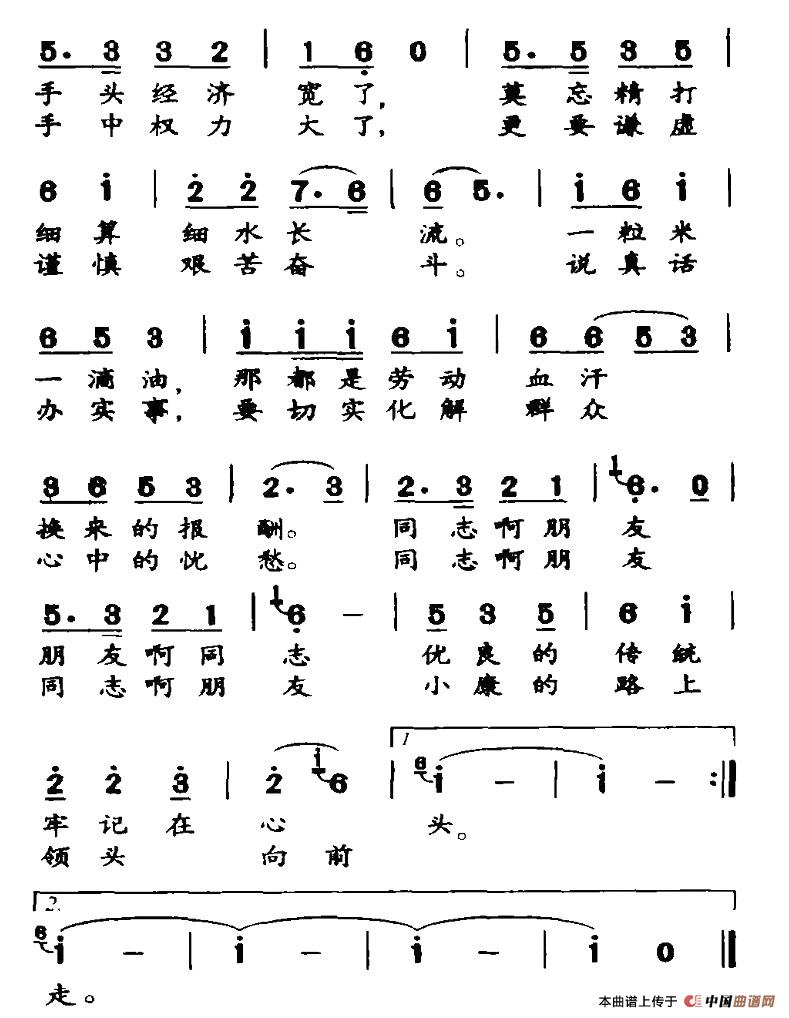 5· 3 3 2 | 1 6 0 | 5· 5 3 5 |
手 头 经 济 宽 了， 莫 忘 精 打
手 中 权 力 大 了， 更 要 谦 虚
6 i | 2 2 7· 6 | 6 5· | i 6 i |
细 算 细 水 长 流。 一 粒 米
谨 慎 艰 苦 奋 斗。 说 真 话
6 5 3 | i i i 6 i | 6 6 5 3 |
一 滴 油， 那 都 是 劳 动 血 汗
办 实 事， 要 切 实 化 解 群 众
3 6 5 3 | 2· 3 | 2· 3 2 1 | 1 6· 0 |
换 来 的 报 酬。 同 志 啊 朋 友
心 中 的 忧 愁。 同 志 啊 朋 友
5· 3 2 1 | 1 6 – | 5 3 5 | 6 i |
朋 友 啊 同 志 优 良 的 传 统
同 志 啊 朋 友 小 康 的 路 上
1
2 2 3 | 2 i 6 | 6 i – | i – :‖
牢 记 在 心 头。
领 头 向 前
2.
6 i – | i – | i – | i 0 ‖
走。
本曲谱上传于 中国曲谱网